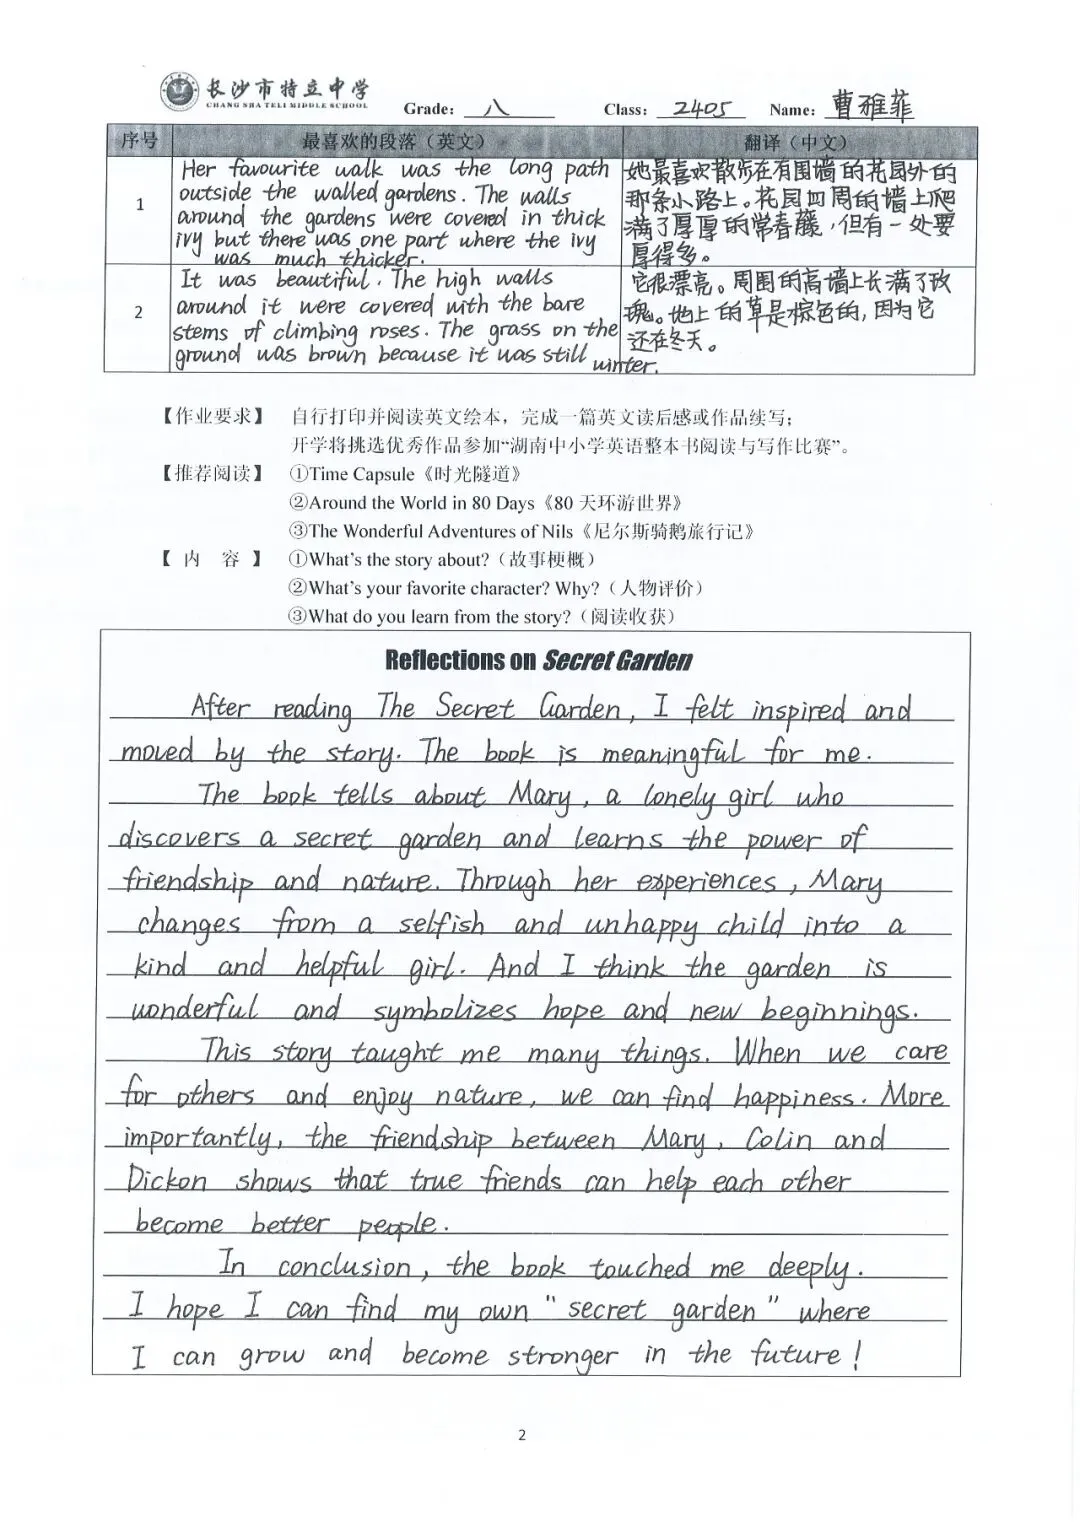 长沙市特立中学
CHANG SHA TELI MIDDLE SCHOOL
Grade: 八 Class: 2405 Name: 曹雅菲
序号 最喜欢的段落（英文） 翻译（中文）
1
Her favourite walk was the long path
outside the walled gardens. The walls
around the gardens were covered in thick
ivy but there was one part where the ivy
was much thicker.
她最喜欢散步在有围墙的花园外的
那条小路上。花园四周的墙上爬
满了厚厚的常春藤，但有一处要
厚得多。
2
It was beautiful. The high walls
around it were covered with the bare
stems of climbing roses. The grass on the
ground was brown because it was still winter.
它很漂亮。周围的高墙上长满了玫
瑰。地上的草是棕色的，因为它
还在冬天。
【作业要求】 自行打印并阅读英文绘本，完成一篇英文读后感或作品续写；
开学将挑选优秀作品参加“湖南中小学英语整本书阅读与写作比赛”。
【推荐阅读】 ①Time Capsule《时光隧道》
②Around the World in 80 Days《80 天环游世界》
③The Wonderful Adventures of Nils《尼尔斯骑鹅旅行记》
【 内 容 】 ①What's the story about?（故事梗概）
②What's your favorite character? Why?（人物评价）
③What do you learn from the story?（阅读收获）
Reflections on Secret Garden
After reading The Secret Garden, I felt inspired and
moved by the story. The book is meaningful for me.
The book tells about Mary, a lonely girl who
discovers a secret garden and learns the power of
friendship and nature. Through her experiences, Mary
changes from a selfish and unhappy child into a
kind and helpful girl. And I think the garden is
wonderful and symbolizes hope and new beginnings.
This story taught me many things. When we care
for others and enjoy nature, we can find happiness. More
importantly, the friendship between Mary, Colin and
Dickon shows that true friends can help each other
become better people.
In conclusion, the book touched me deeply.
I hope I can find my own "secret garden" where
I can grow and become stronger in the future!
2